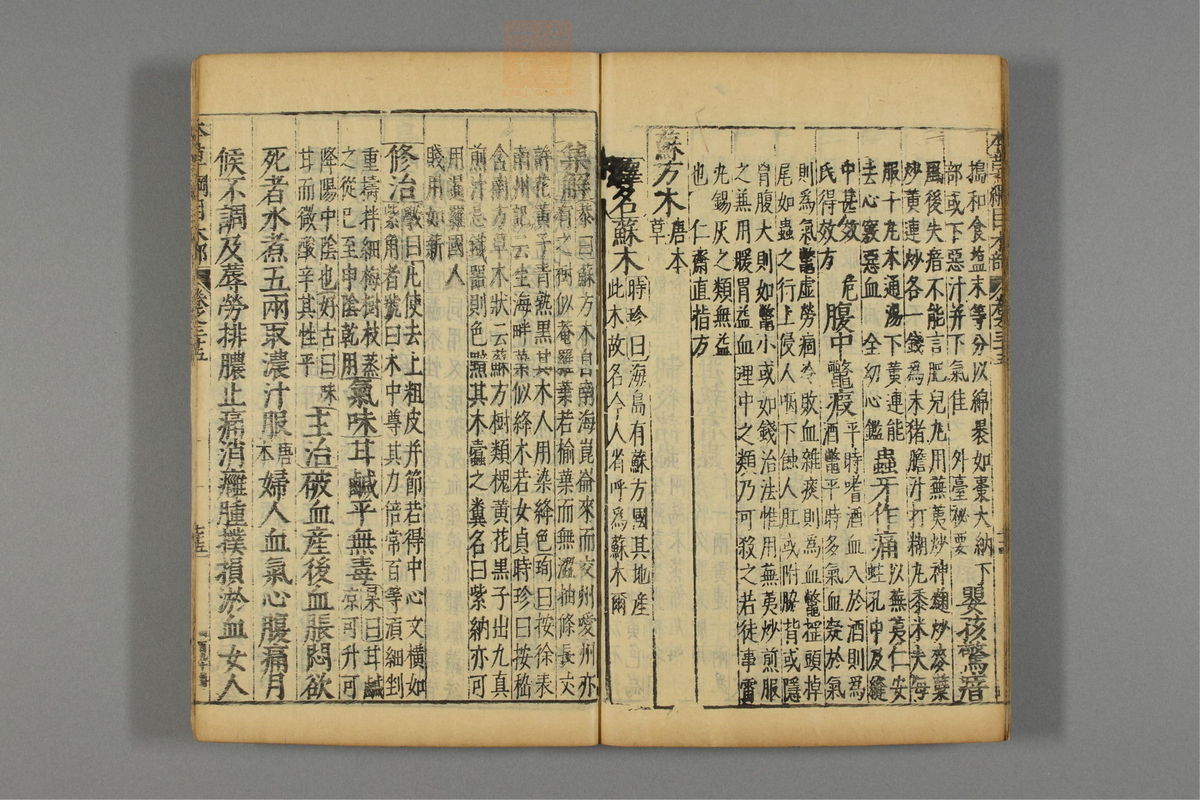 本草綱目木部 卷之三十五
搗和食塩末等分以綿裹如棗大納下
部或下惡汁并下氣佳 外臺秘要
嬰孩驚瘖
風後失瘖不能言肥兒丸用蕪荑炒神麯炒麥蘖
炒黃連炒各一錢為末猪膽汁打糊丸黍米大每
服十丸木通湯下黃連能
去心竅惡血 全幼心鑑
蟲牙作痛
以蕪荑仁安
蛀孔中及縫
中甚效 危
氏得效方
腹中鱉瘕
平時嗜酒血入於酒則為
酒鱉平時多氣血凝於氣
則爲氣鱉虛勞痼冷敗血雜痰則爲血鱉揺頭掉
尾如蟲之行上侵人咽下蝕人肛或附脇背或隱
胃腹大則如鱉小或如錢治法惟用蕪荑炒煎服
之兼用暖胃益血理中之類乃可殺之若徒事雷
丸錫灰之類無益
也 仁齋直指方
蘇方木 唐本草
釋名蘇木
時珍曰海島有蘇方國其地産
此木故名今人省呼爲蘇木爾
集解
恭曰蘇方木自南海崑崙來而交州愛州亦
有之樹似菴羅葉若榆葉而無澀抽條長丈
許花黃子青熟黑其木人用染絳色珣曰按徐表
南州記云生海畔葉似絳木若女貞時珍曰按嵇
含南方草木狀云蘇方樹類槐黃花黑子出九真
煎汁忌鐵器則色黯其木蠹之糞名曰紫納亦可
用暹羅國人
賤用如薪
修治
斆曰凡使去上粗皮并節若得中心文橫如
紫角者號曰木中尊其力倍常百等湏細剉
重擣拌細梅樹枝蒸
之從巳至申陰乾用
氣味甘鹹平無毒
杲曰甘鹹
凉可升可
降陽中陰也好古曰味
甘而微酸辛其性平
主治破血産後血脹悶欲
死者水煮五兩取濃汁服唐本婦人血氣心腹痛月
候不調及蓐勞排膿止痛消癰腫撲損淤血女人
本草綱目木部 卷之三十五